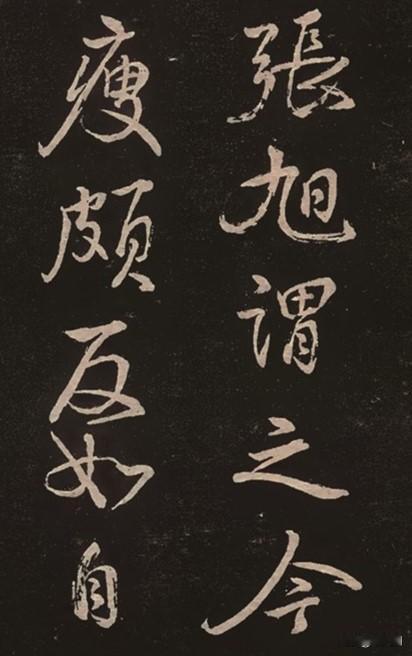 張旭謂之今
瘦頗反如自